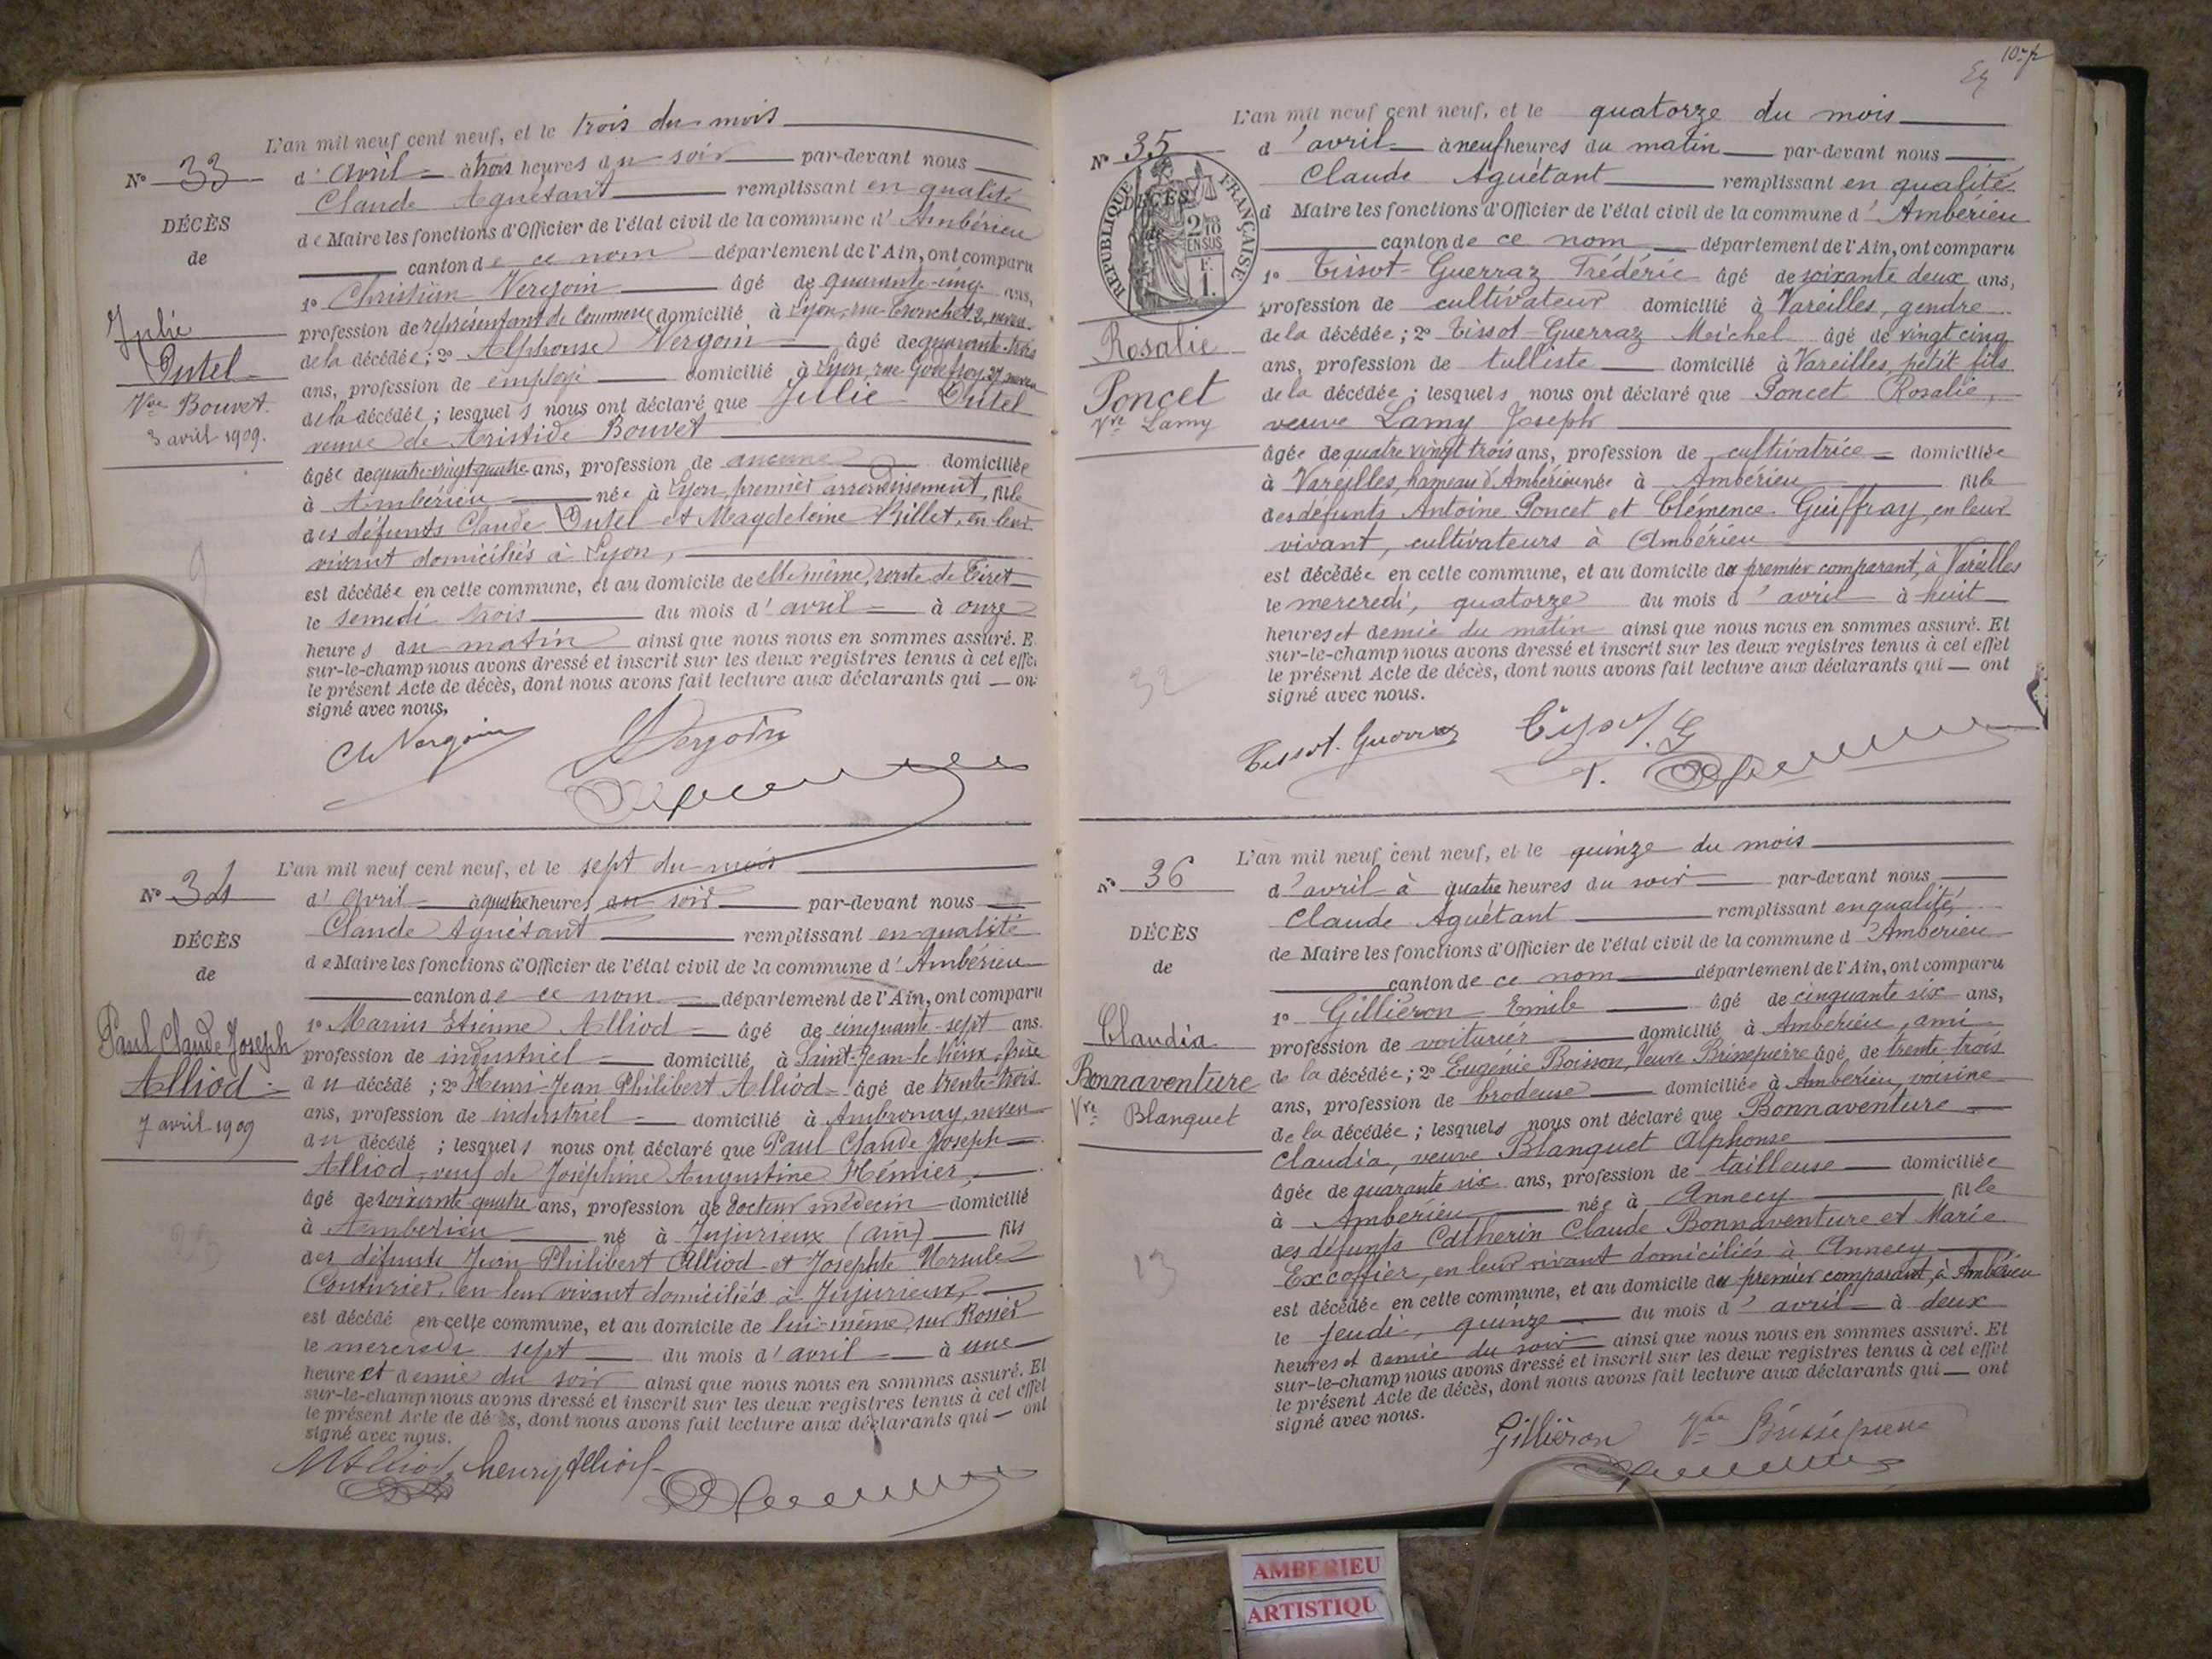 L'an mil neuf cent neuf, et le trois du mois
N° 33
d'Avril à trois heures du soir par-devant nous
Claude Aguétant remplissant en qualité
DÉCÈS
de Maire les fonctions d'Officier de l'état civil de la commune d'Ambérieu
de
canton de ce nom département de l'Ain, ont comparu
1° Christian Vergoin âgé de quarante-cinq ans,
Julie
profession de représentant de commerce domicilié à Lyon, rue Tronchet 2, neveu
Dutel
de la décédée; 2° Alphonse Vergoin âgé de quarante-trois
Vve Bouvet
ans, profession de employé domicilié à Lyon, rue Godefroy 27 neveu
3 avril 1909.
de la décédée; lesquels nous ont déclaré que Julie Dutel
veuve de Aristide Bouvet
âgée de quatre-vingt-quatre ans, profession de aucune domiciliée
à Ambérieu née à Lyon, premier arrondissement, fille
des défunts Claude Dutel et Magdeleine Billet, en leur
vivant domiciliés à Lyon,
est décédée en cette commune, et au domicile de elle même, route de Tiret
le samedi trois du mois d'avril à onze
heures du matin ainsi que nous nous en sommes assuré. E
sur-le-champ nous avons dressé et inscrit sur les deux registres tenus à cet effe
le présent Acte de décès, dont nous avons fait lecture aux déclarants qui — on
signé avec nous.
Ch Vergoin Vergoin
L'an mil neuf cent neuf, et le sept du mois
N° 34
d'Avril à quatre heures du soir par-devant nous
Claude Aguétant remplissant en qualité
DÉCÈS
de Maire les fonctions d'Officier de l'état civil de la commune d'Ambérieu
de
canton de ce nom département de l'Ain, ont comparu
1° Marius Etienne Alliod âgé de cinquante-sept ans.
Paul Claude Joseph
profession de industriel domicilié à Saint-Jean-le-Vieux, frère
Alliod
du décédé; 2° Henri-Jean Philibert Alliod âgé de trente-trois
ans, profession de industriel domicilié à Ambronay, neveu
7 avril 1909
du décédé; lesquels nous ont déclaré que Paul Claude Joseph
Alliod, veuf de Joséphine Augustine Hémier,
âgé de soixante quatre ans, profession de docteur médecin domicilié
à Ambérieu né à Jujurieux (ain) fils
des défunts Jean Philibert Alliod et Josephte Ursule
Couturier, en leur vivant domiciliés à Jujurieux,
est décédé en cette commune, et au domicile de lui-même, sur Rosier
le mercredi sept du mois d'avril à une
heure et demie du soir ainsi que nous nous en sommes assuré. Et
sur-le-champ nous avons dressé et inscrit sur les deux registres tenus à cet effet
le présent Acte de décès, dont nous avons fait lecture aux déclarants qui — ont
signé avec nous.
MAlliod henry Alliod
L'an mil neuf cent neuf, et le quatorze du mois
N° 35
d'avril à neuf heures du matin par-devant nous
Claude Aguétant remplissant en qualité
RÉPUBLIQUE FRANÇAISE
DÉCÈS
2/10 EN SUS
1 F.
de Maire les fonctions d'Officier de l'état civil de la commune d'Ambérieu
canton de ce nom département de l'Ain, ont comparu
1° Tissot-Guerraz Frédéric âgé de soixante deux ans,
profession de cultivateur domicilié à Vareilles, gendre
Rosalie
de la décédée; 2° Tissot-Guerraz Meichel âgé de vingt cinq
ans, profession de tulliste domicilié à Vareilles, petit fils
Poncet
de la décédée; lesquels nous ont déclaré que Poncet Rosalie,
Vve Lamy
veuve Lamy Joseph
âgée de quatre vingt trois ans, profession de cultivatrice domiciliée
à Vareilles, hameau d'Ambérieu née à Ambérieu fille
des défunts Antoine Poncet et Clémence Guiffray, en leur
vivant, cultivateurs à Ambérieu
est décédée en cette commune, et au domicile du premier comparant, à Vareilles
le mercredi, quatorze du mois d'avril à huit
heures et demie du matin ainsi que nous nous en sommes assuré. Et
sur-le-champ nous avons dressé et inscrit sur les deux registres tenus à cet effet
le présent Acte de décès, dont nous avons fait lecture aux déclarants qui — ont
signé avec nous.
32
Tissot-Guerraz Tissot. G
L'an mil neuf cent neuf, et le quinze du mois
N° 36
d'avril à quatre heures du soir par-devant nous
Claude Aguétant remplissant en qualité
DÉCÈS
de Maire les fonctions d'Officier de l'état civil de la commune d'Ambérieu
de
canton de ce nom département de l'Ain, ont comparu
1° Gilliéron Emile âgé de cinquante six ans,
Claudia
profession de voiturier domicilié à Ambérieu, ami
Bonnaventure
de la décédée; 2° Eugénie Boisson, veuve Brisepierre âgé de trente-trois
Vve Blanquet
ans, profession de brodeuse domiciliée à Ambérieu, voisine
de la décédée; lesquels nous ont déclaré que Bonnaventure
Claudia, veuve Blanquet Alphonse
âgée de quarante six ans, profession de tailleuse domiciliée
à Ambérieu née à Annecy fille
des défunts Catherin Claude Bonnaventure et Marie
Excoffier, en leur vivant domiciliés à Annecy
13
est décédée en cette commune, et au domicile du premier comparant, à Ambérieu
le jeudi, quinze du mois d'avril à deux
heures et demie du soir ainsi que nous nous en sommes assuré. Et
sur-le-champ nous avons dressé et inscrit sur les deux registres tenus à cet effet
le présent Acte de décès, dont nous avons fait lecture aux déclarants qui — ont
signé avec nous.
Gilliéron Vve Brisepierre
AMBERIEU
ARTISTIQU